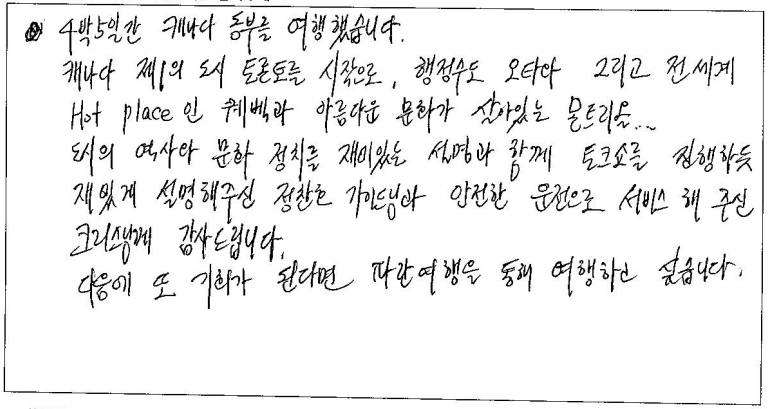 4박5일간 캐나다 동부를 여행했습니다.
캐나다 제1의 도시 토론토를 시작으로, 행정수도 오타와 그리고 전세계
Hot place인 퀘벡과 아름다운 문화가 살아있는 몬트리올...
도시의 역사와 문화 정치를 재미있는 설명과 함께 토크쇼를 진행하듯
재밌게 설명해주신 정찬호 가이드님과 안전한 운전으로 서비스 해 주신
크리스님께 감사드립니다.
다음에 또 기회가 된다면 파란여행을 통해 여행하고 싶습니다.